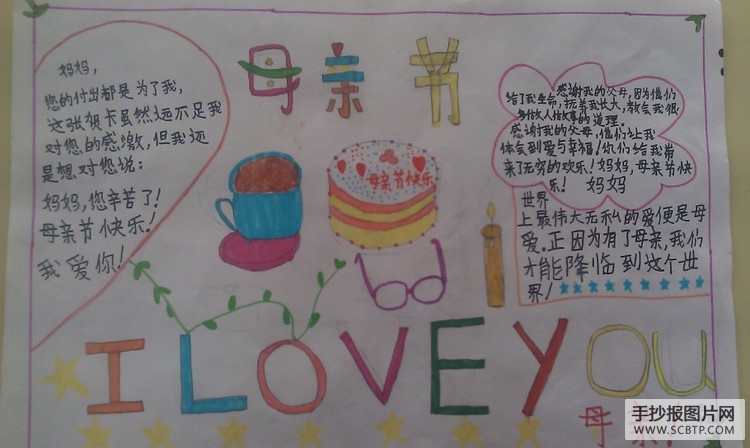 母亲节
妈妈，
您的付出都是为了我，
这张贺卡虽然远不足我
对您的感激，但我还
是想对您说：
妈妈，您辛苦了！
母亲节快乐！
我爱你！
母亲节快乐
感谢我的父母，因为他们
给了我生命，抚养我长大，教会我很
多做人做事的道理．
感谢我的父母，他们让我
体会到爱与幸福！你们给我带
来了无穷的欢乐！妈妈，母亲节快
乐！ 妈妈
世界
上最伟大无私的爱便是母
爱．正因为有了母亲，我们
才能降临到这个世
界！
I LOVE YOU
母
手抄报图片网
WWW.SCBTP.COM